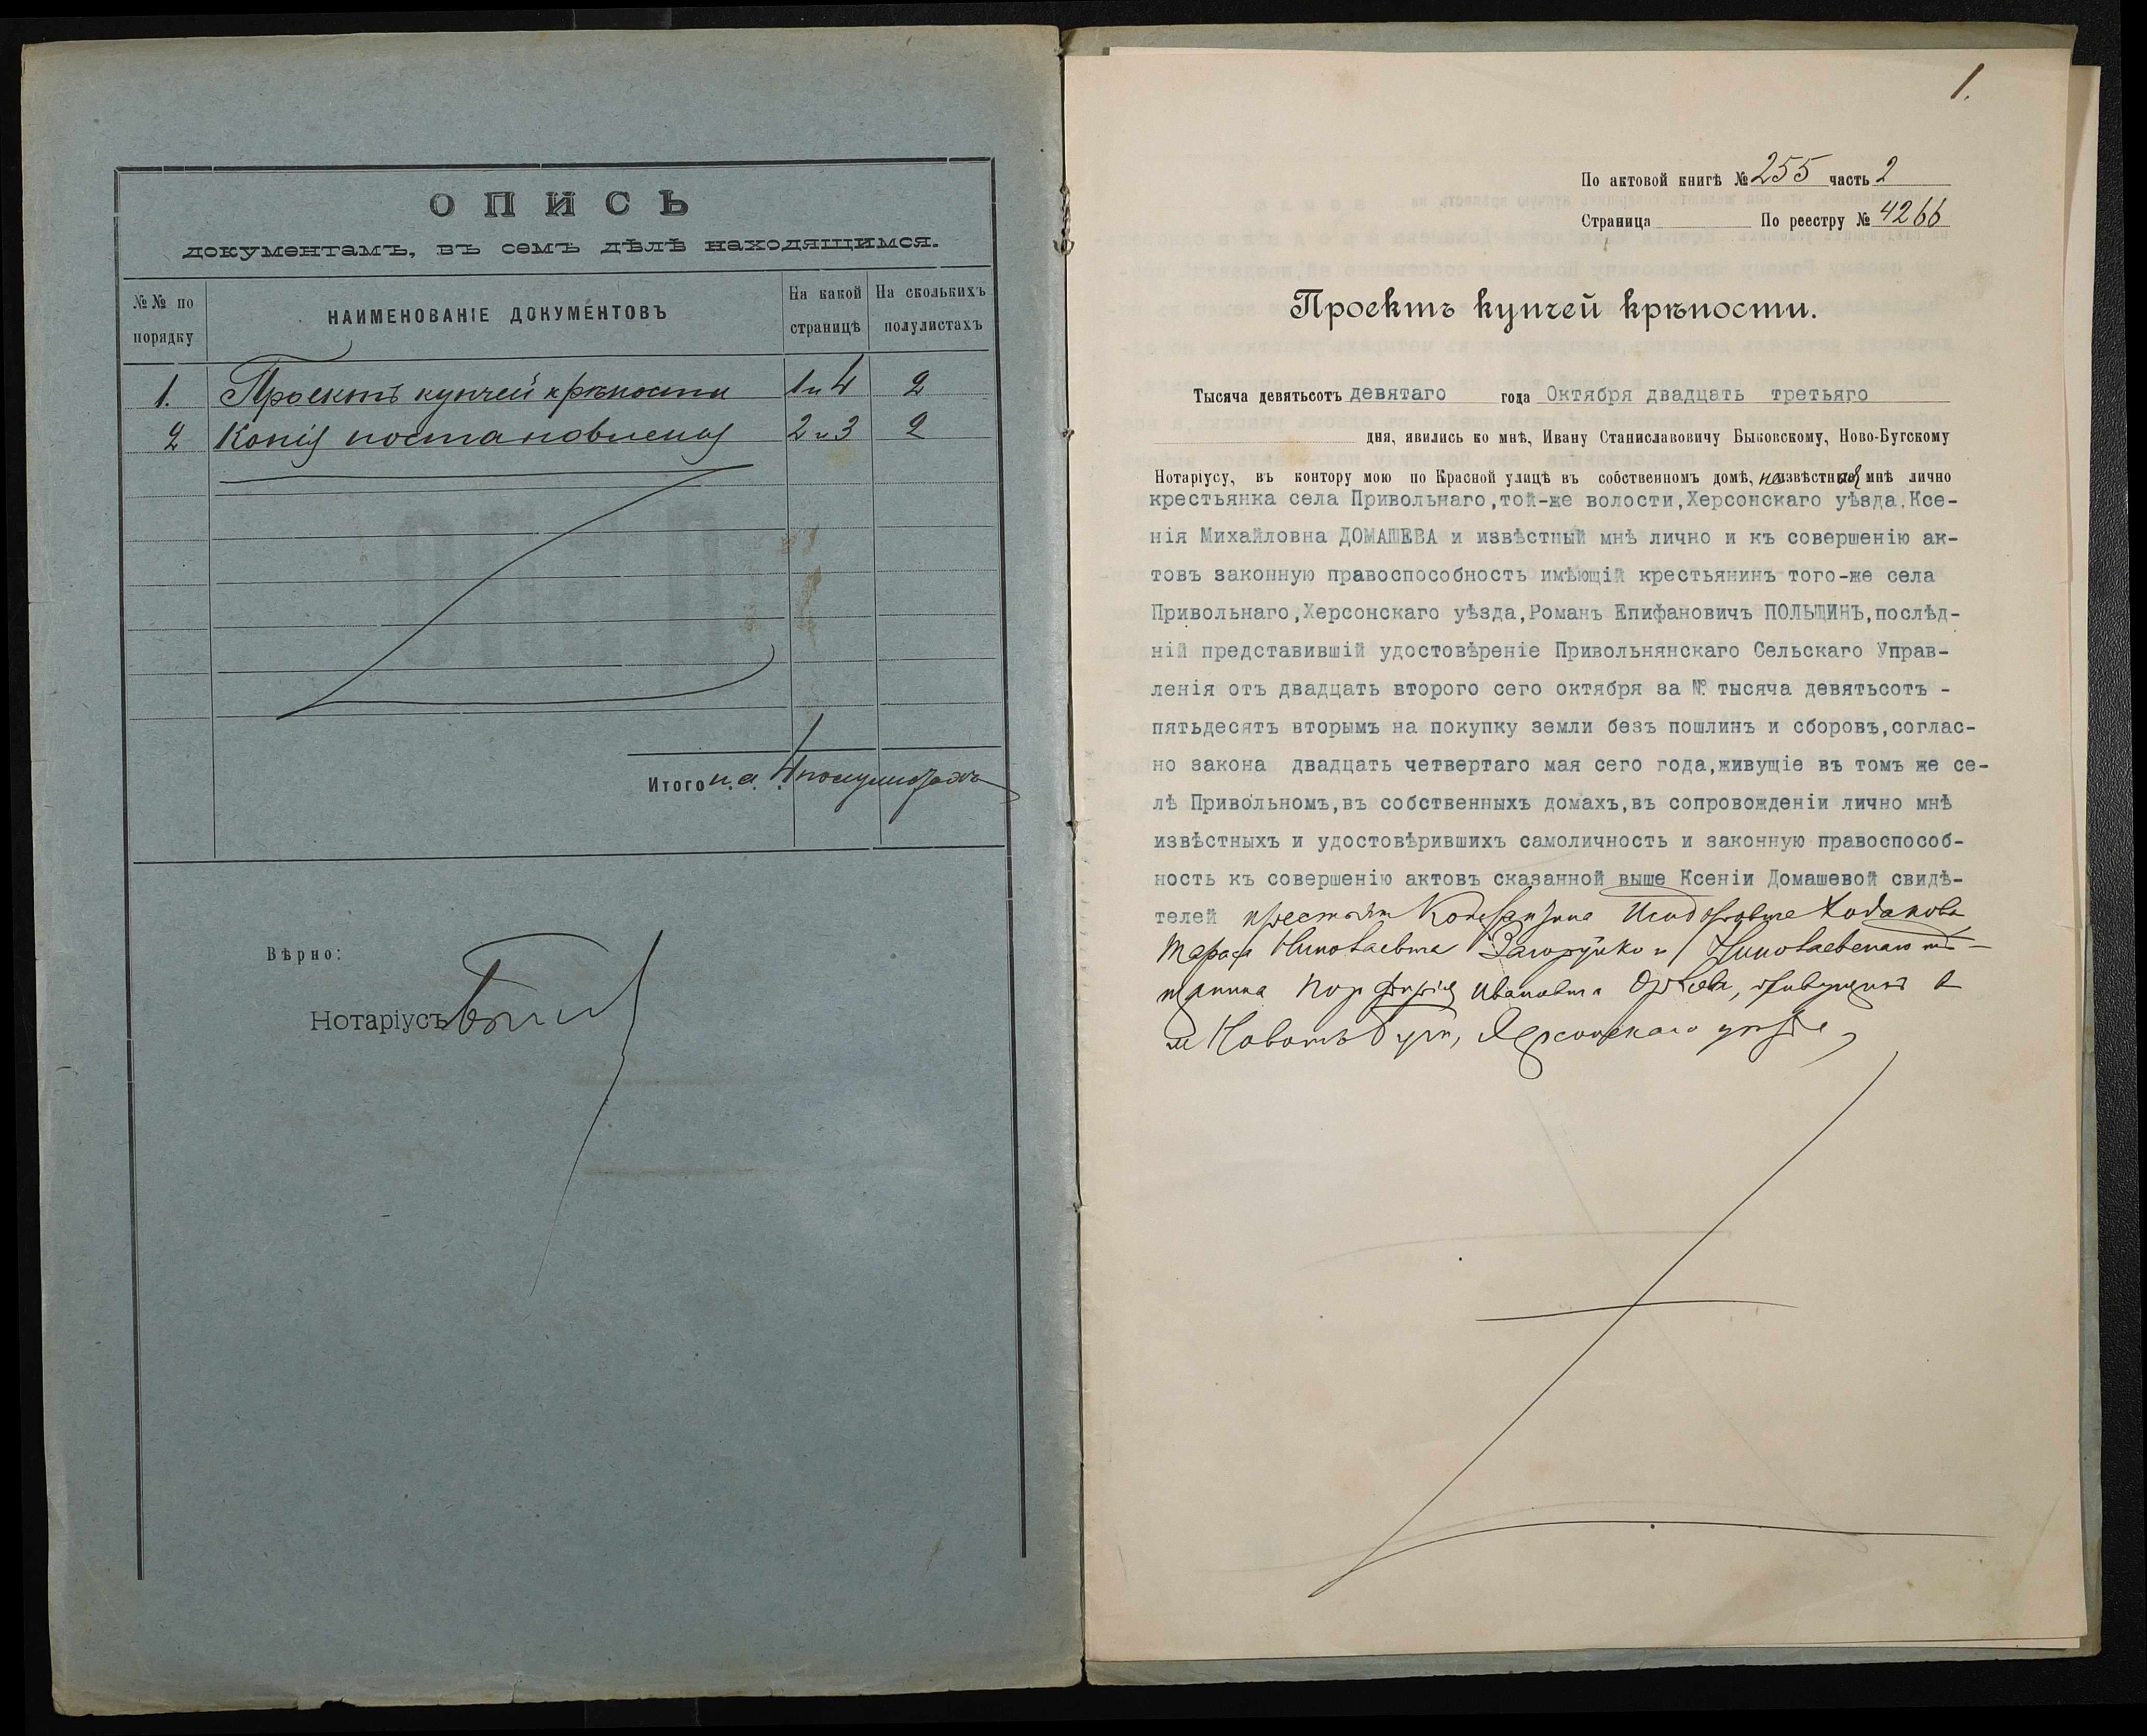 ОПИСЬ
документамъ, въ семъ дѣлѣ находящимся.
№№ по порядку
НАИМЕНОВАНІЕ ДОКУМЕНТОВЪ
На какой страницѣ
На сколькихъ полулистахъ
1. Проектъ купчей крѣпости 1 и 4 2
2 Копія постановленія 2 и 3 2
Итого на 4 полулистахъ
Вѣрно:
Нотаріусъ
1.
По актовой книгѣ № 255 часть 2
Страница По реестру № 4266
Проектъ купчей крѣпости.
Тысяча девятьсотъ девятаго года Октября двадцать третьяго
дня, явились ко мнѣ, Ивану Станиславовичу Быковскому, Ново-Бугскому
Нотаріусу, въ контору мою по Красной улицѣ въ собственномъ домѣ, неизвѣстная мнѣ лично
крестьянка села Привольнаго,той-же волости,Херсонскаго уѣзда,Ксе-
нія Михайловна ДОМАШЕВА и извѣстный мнѣ лично и къ совершенію ак-
товъ законную правоспособность имѣющій крестьянинъ того-же села
Привольнаго,Херсонскаго уѣзда,Романъ Епифановичъ ПОЛЬЩИНЪ,послѣд-
ній представившій удостовѣреніе Привольнянскаго Сельскаго Управ-
ленія отъ двадцать второго сего октября за № тысяча девятьсотъ -
пятьдесятъ вторымъ на покупку земли безъ пошлинъ и сборовъ,соглас-
но закона двадцать четвертаго мая сего года,живущіе въ томъ же се-
лѣ Привольномъ,въ собственныхъ домахъ,въ сопровожденіи лично мнѣ
извѣстныхъ и удостовѣрившихъ самоличность и законную правоспособ-
ность къ совершенію актовъ сказанной выше Ксеніи Домашевой свидѣ-
телей крестьян Константина Исидоровича Ходакова
Тараса Николаевича Загоруйко и Николаевскаго мѣ-
щанина Порфирія Ивановича живущихъ в
м Новомъ Бугѣ, Херсонскаго уѣзда,